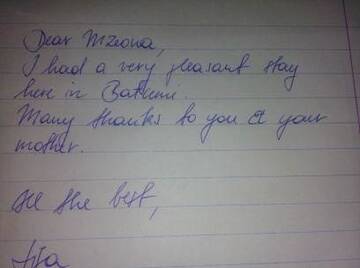 Dear Mzeona,
I had a very pleasant stay
here in Batumi.
Many thanks to you & your
mother.
All the best,